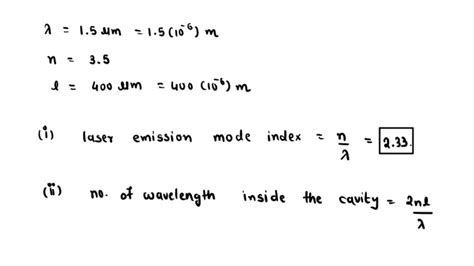 λ = 1.5 μm = 1.5 (10⁻⁶) m
n = 3.5
l = 400 μm = 400 (10⁻⁶) m
(i) laser emission mode index = n/λ = 2.33.
(ii) no. of wavelength inside the cavity = 2nl/λ